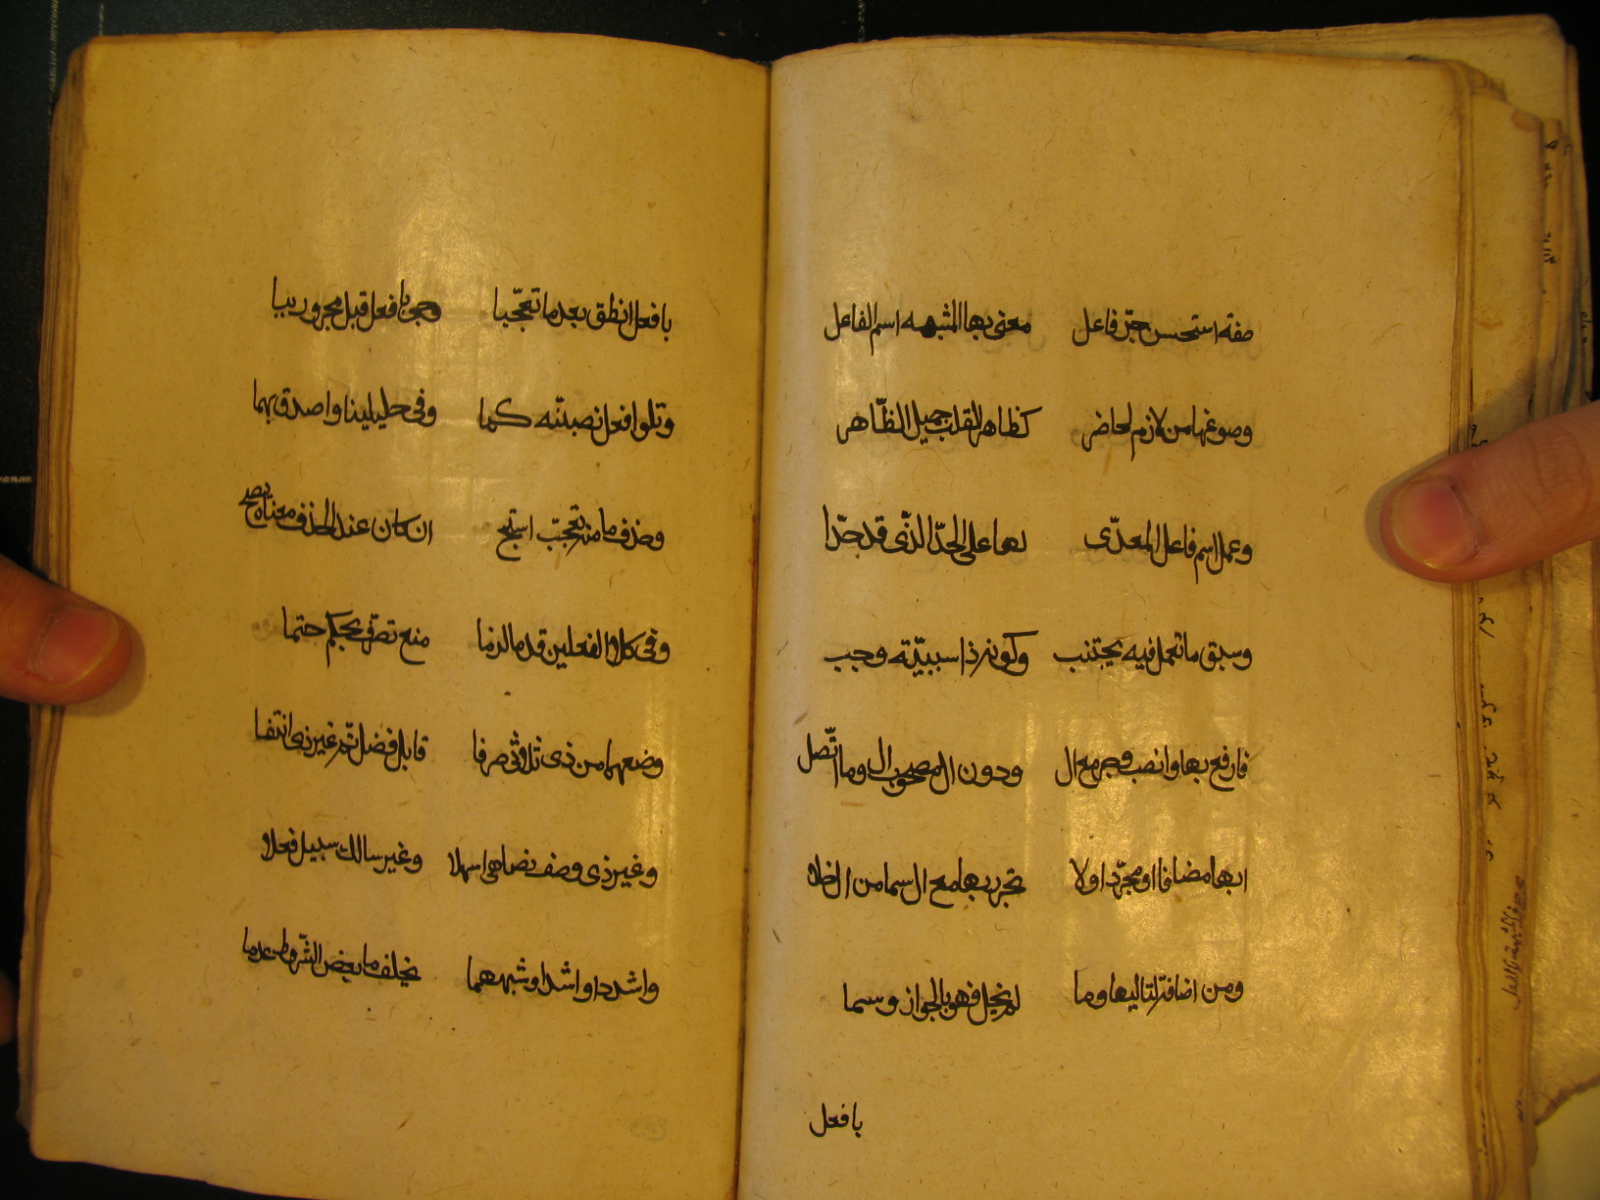 صفة استحسن جرّ فاعل معنى بها المشبهه اسم الفاعل
وصوغها من لازم لحاضر كظاهر القلب جميل الظّاهر
وعمل اسم فاعل المعدّى لها على الحدّ الذّى قد حدّا
وسبق ما تعمل فيه يجتنب وكونه ذا سببيّته وجب
فارفع بها وانصب وجر مع ال ودون ال مصحوب ال وما اتّصل
ابها مضافا او مجرّد اولا تجرر بها مع ال سما من ال خلا
ومن اضافة لتاليها وما لم يخل فهو بالجواز وسما
بافعل
بافعل انطق بعد ما تعجّبا وجئ بافعل قبل مجرور ببا
وتلو افعل انصبنّه كما وفى خليلينا واصدق بهما
وحذف ما منه تعجّبت استبح ان كان عند الحذف معناه يضح
وفى كلا الفعلين قدما لزما منع تصرف بحكم حتما
وصغهما من ذى ثلاثى صرفا قابل فضل تم غير ذى انتفا
وغير ذى وصف يضاهى اسهلا وغير سالك سبيل فعلا
واشدد او اشد او شبههما يخلف ما بعض الشّروط عدما